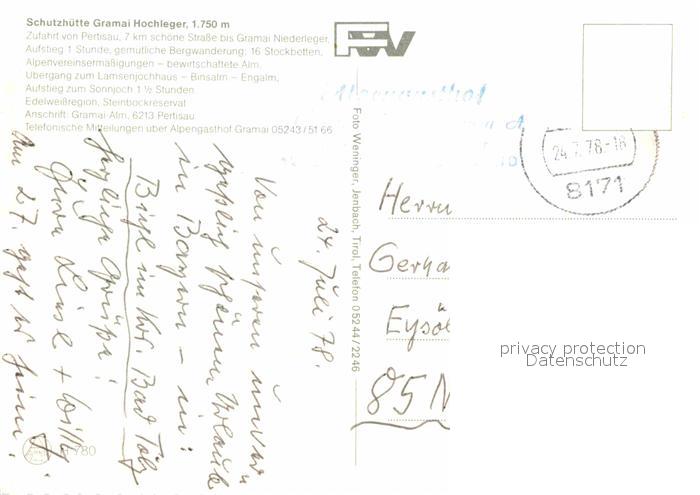 Schutzhütte Gramai Hochleger, 1.750 m
Zufahrt von Pertisau, 7 km schöne Straße bis Gramai Niederleger,
Aufstieg 1 Stunde, gemütliche Bergwanderung; 16 Stockbetten,
Alpenvereinsermäßigungen – bewirtschaftete Alm,
Übergang zum Lamsenjochhaus – Binsalm – Engalm,
Aufstieg zum Sonnjoch 1 ½ Stunden
Edelweißregion, Steinbockreservat
Anschrift: Gramai-Alm, 6213 Pertisau
Telefonische Mitteilungen über Alpengasthof Gramai 05243/5166
Foto Weninger, Jenbach, Tirol, Telefon 05244/2246
24.7.78-18
8171
24. Juli 78.
Von unserem
Urlaub
in Bayern – in:
Bichl im Kr. Bad Tölz
herzliche Grüße
Eure Liesl + Willy.
Am 27. geht's heim.
Herrn
Gerha
Eysöl
85 N
privacy protection
Datenschutz
780